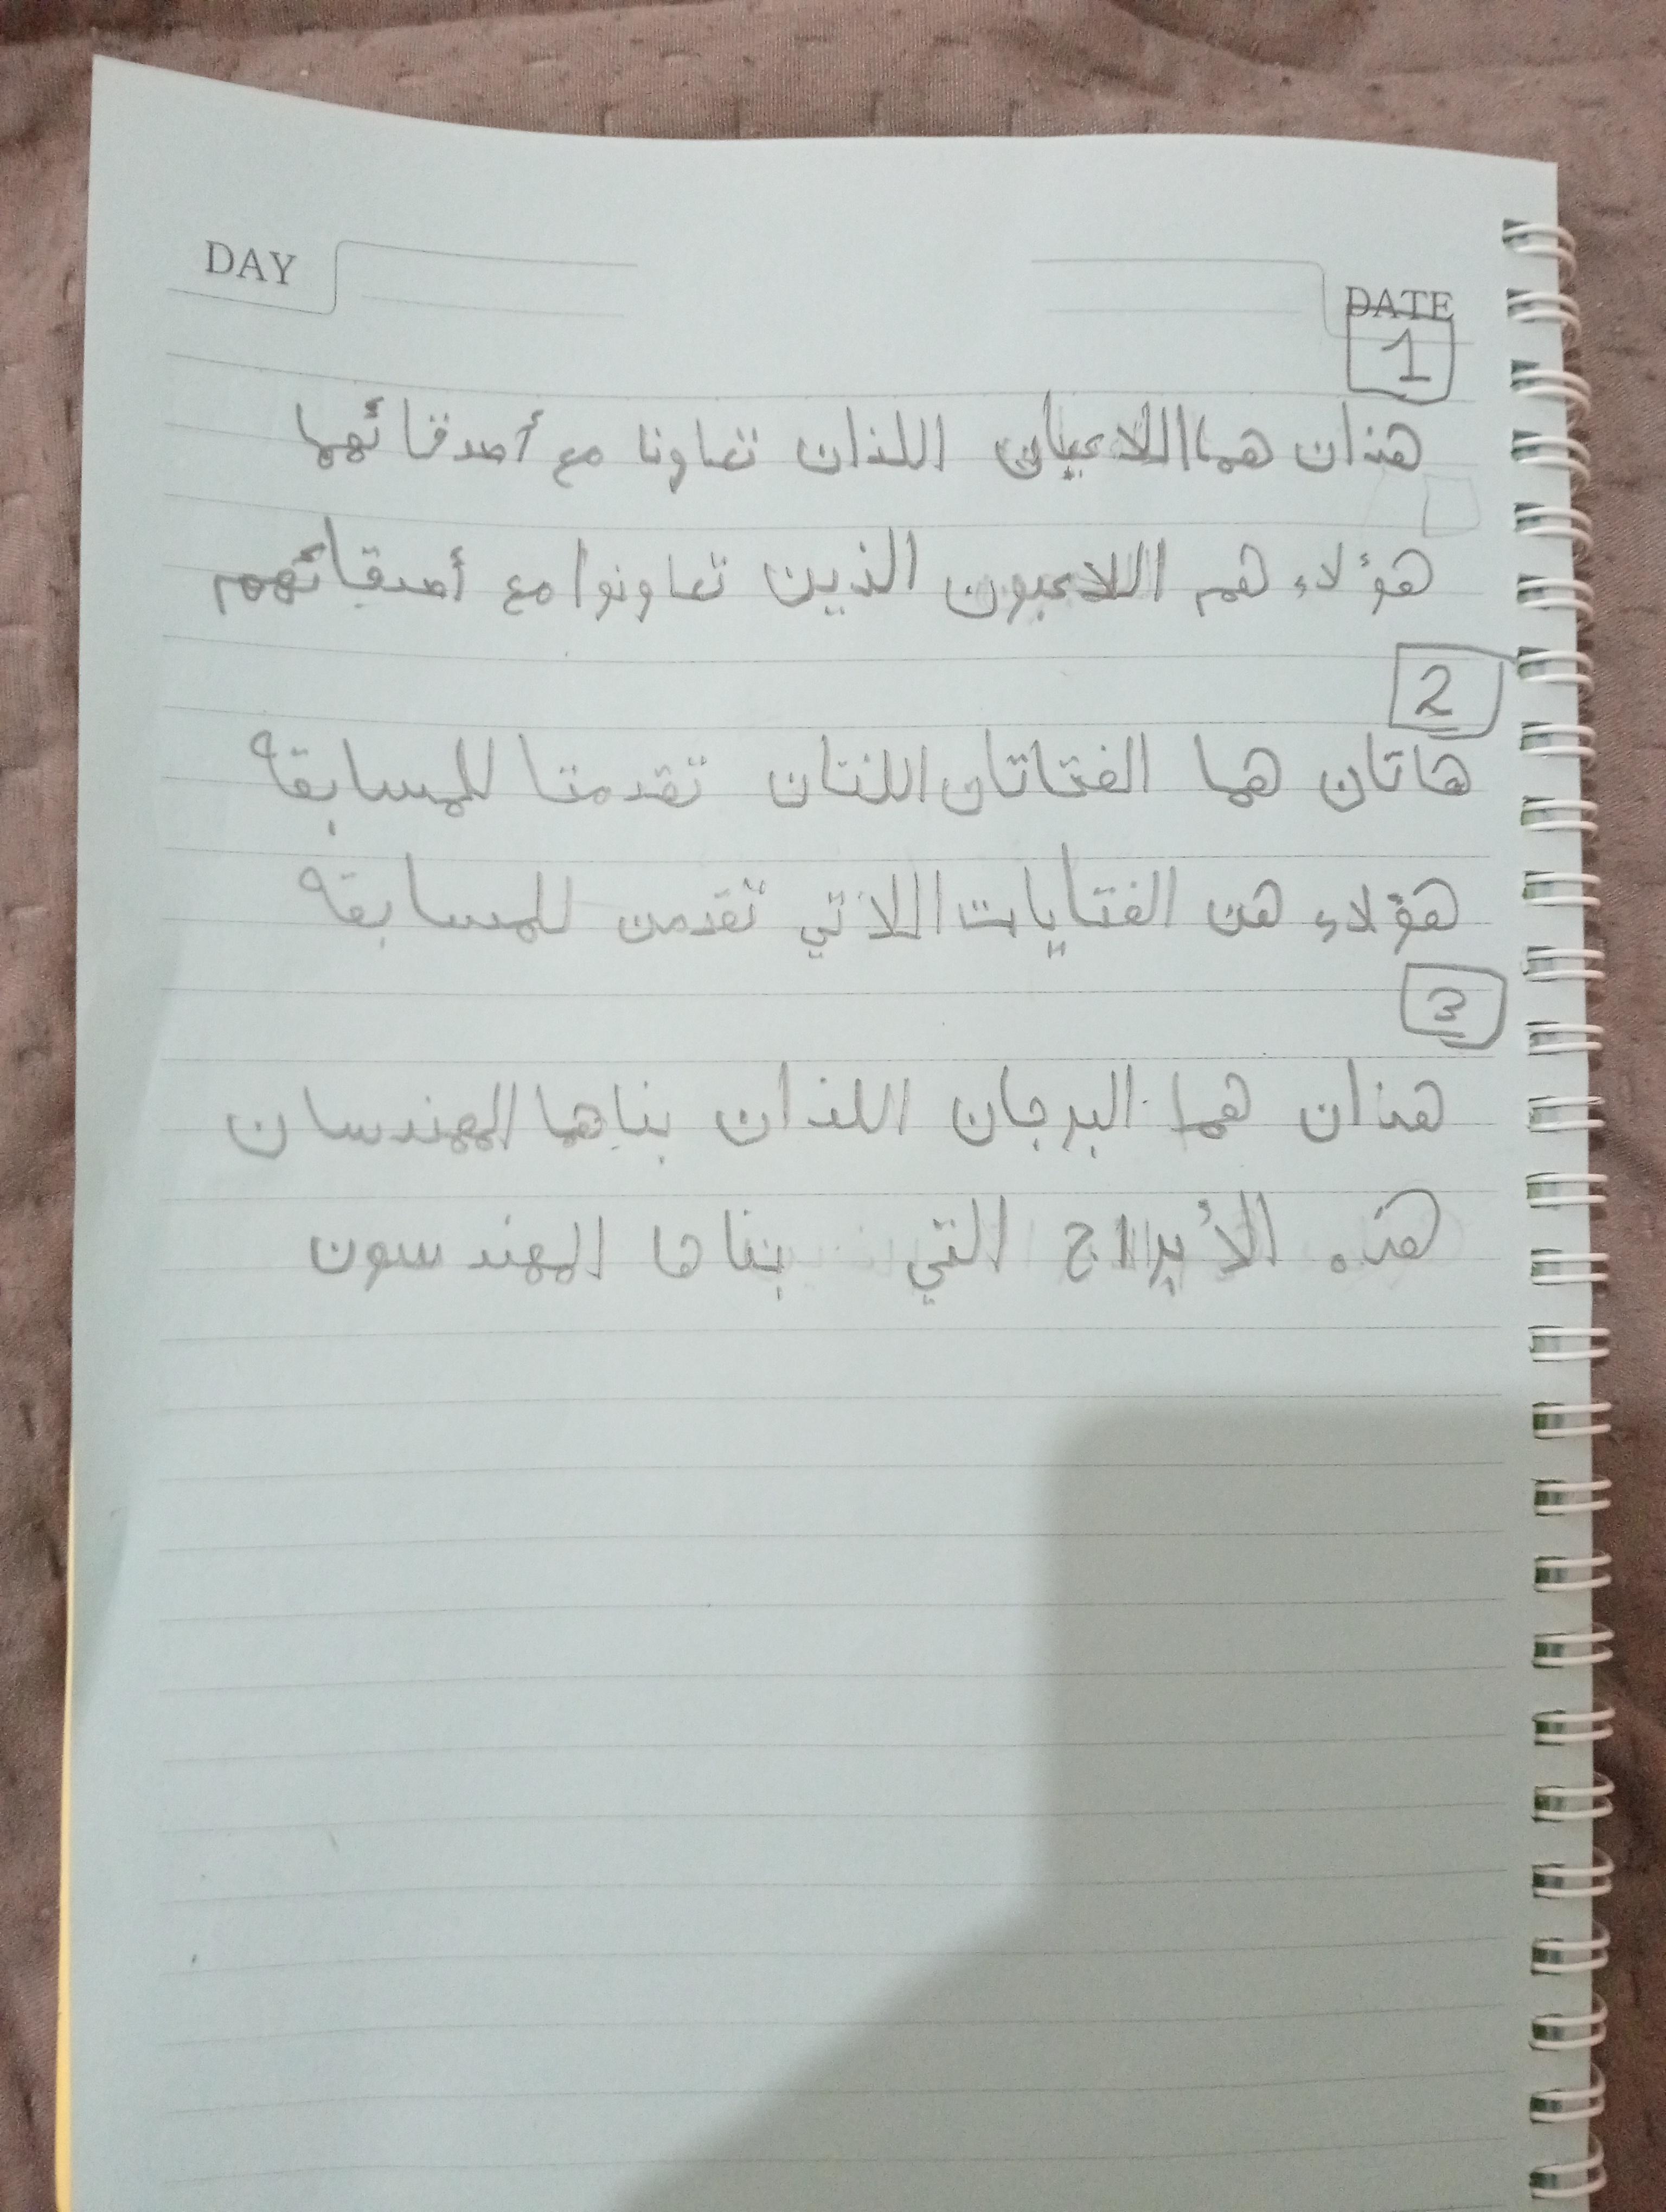 DAY
DATE
1
هذان هما اللاعبان اللذان تعاونا مع أصدقائهما
هؤلاء هم اللاعبون الذين تعاونوا مع أصدقائهم
2
هاتان هما الفتاتان اللتان تقدمتا للمسابقه
هؤلاء هن الفتايات اللاتي تقدمن للمسابقه
3
هذان هما البرجان اللذان بناهما المهندسان
هذه الأبراج التي بناها المهندسون